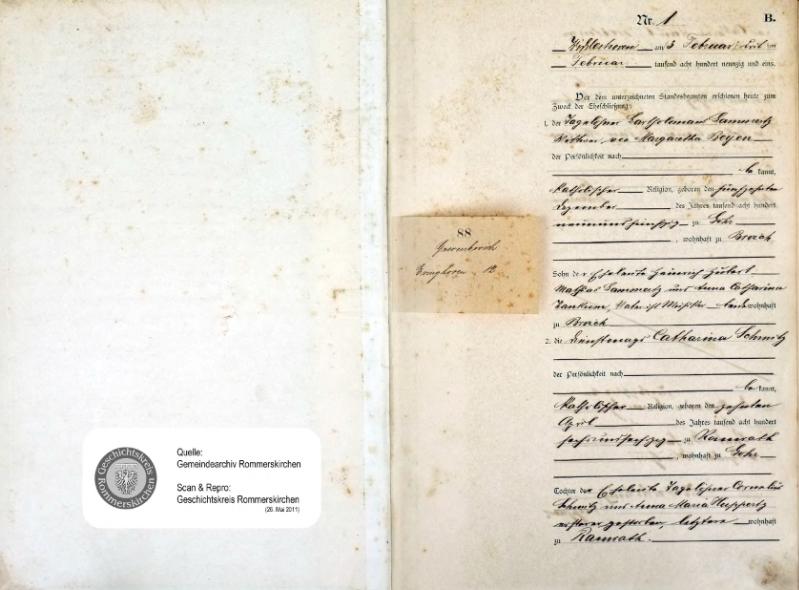 Geschichtskreis
Rommerskirchen
Quelle:
Gemeindearchiv Rommerskirchen
Scan & Repro:
Geschichtskreis Rommerskirchen
(26. Mai 2011)
88
Nr. 1
B.
am 3 Februar
Februar tausend acht hundert neunzig und eins.
Vor dem unterzeichneten Standesbeamten erschienen heute zum
Zweck der Eheschließung:
1. der Tagelöhner Bartholomäus Lammertz
Margaretha
der Persönlichkeit nach
be kannt,
katholischer Religion, geboren den fünfzehnten
Dezember des Jahres tausend acht hundert
neunundfünfzig zu Gohr
, wohnhaft zu Broich
Sohn der Eheleute Heinrich Hubert
Mathias Lammertz und Anna Catharina
wohnhaft
zu Broich
2. die Dienstmagd Catharina Schmitz
der Persönlichkeit nach
be kannt,
katholischer Religion, geboren den zehnten
April des Jahres tausend acht hundert
sechsundsechzig zu Ramrath
, wohnhaft zu Gohr
Tochter der Eheleute Tagelöhner Cornelius
Schmitz und Anna Maria Huppertz
ersterer gestorben, letztere wohnhaft
zu Ramrath.